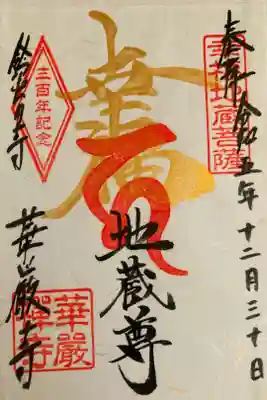 奉拝 令和五年十二月三十日
幸福地蔵菩薩
幸福
地蔵尊
三百年記念
鈴虫寺 華厳寺
華嚴禪寺